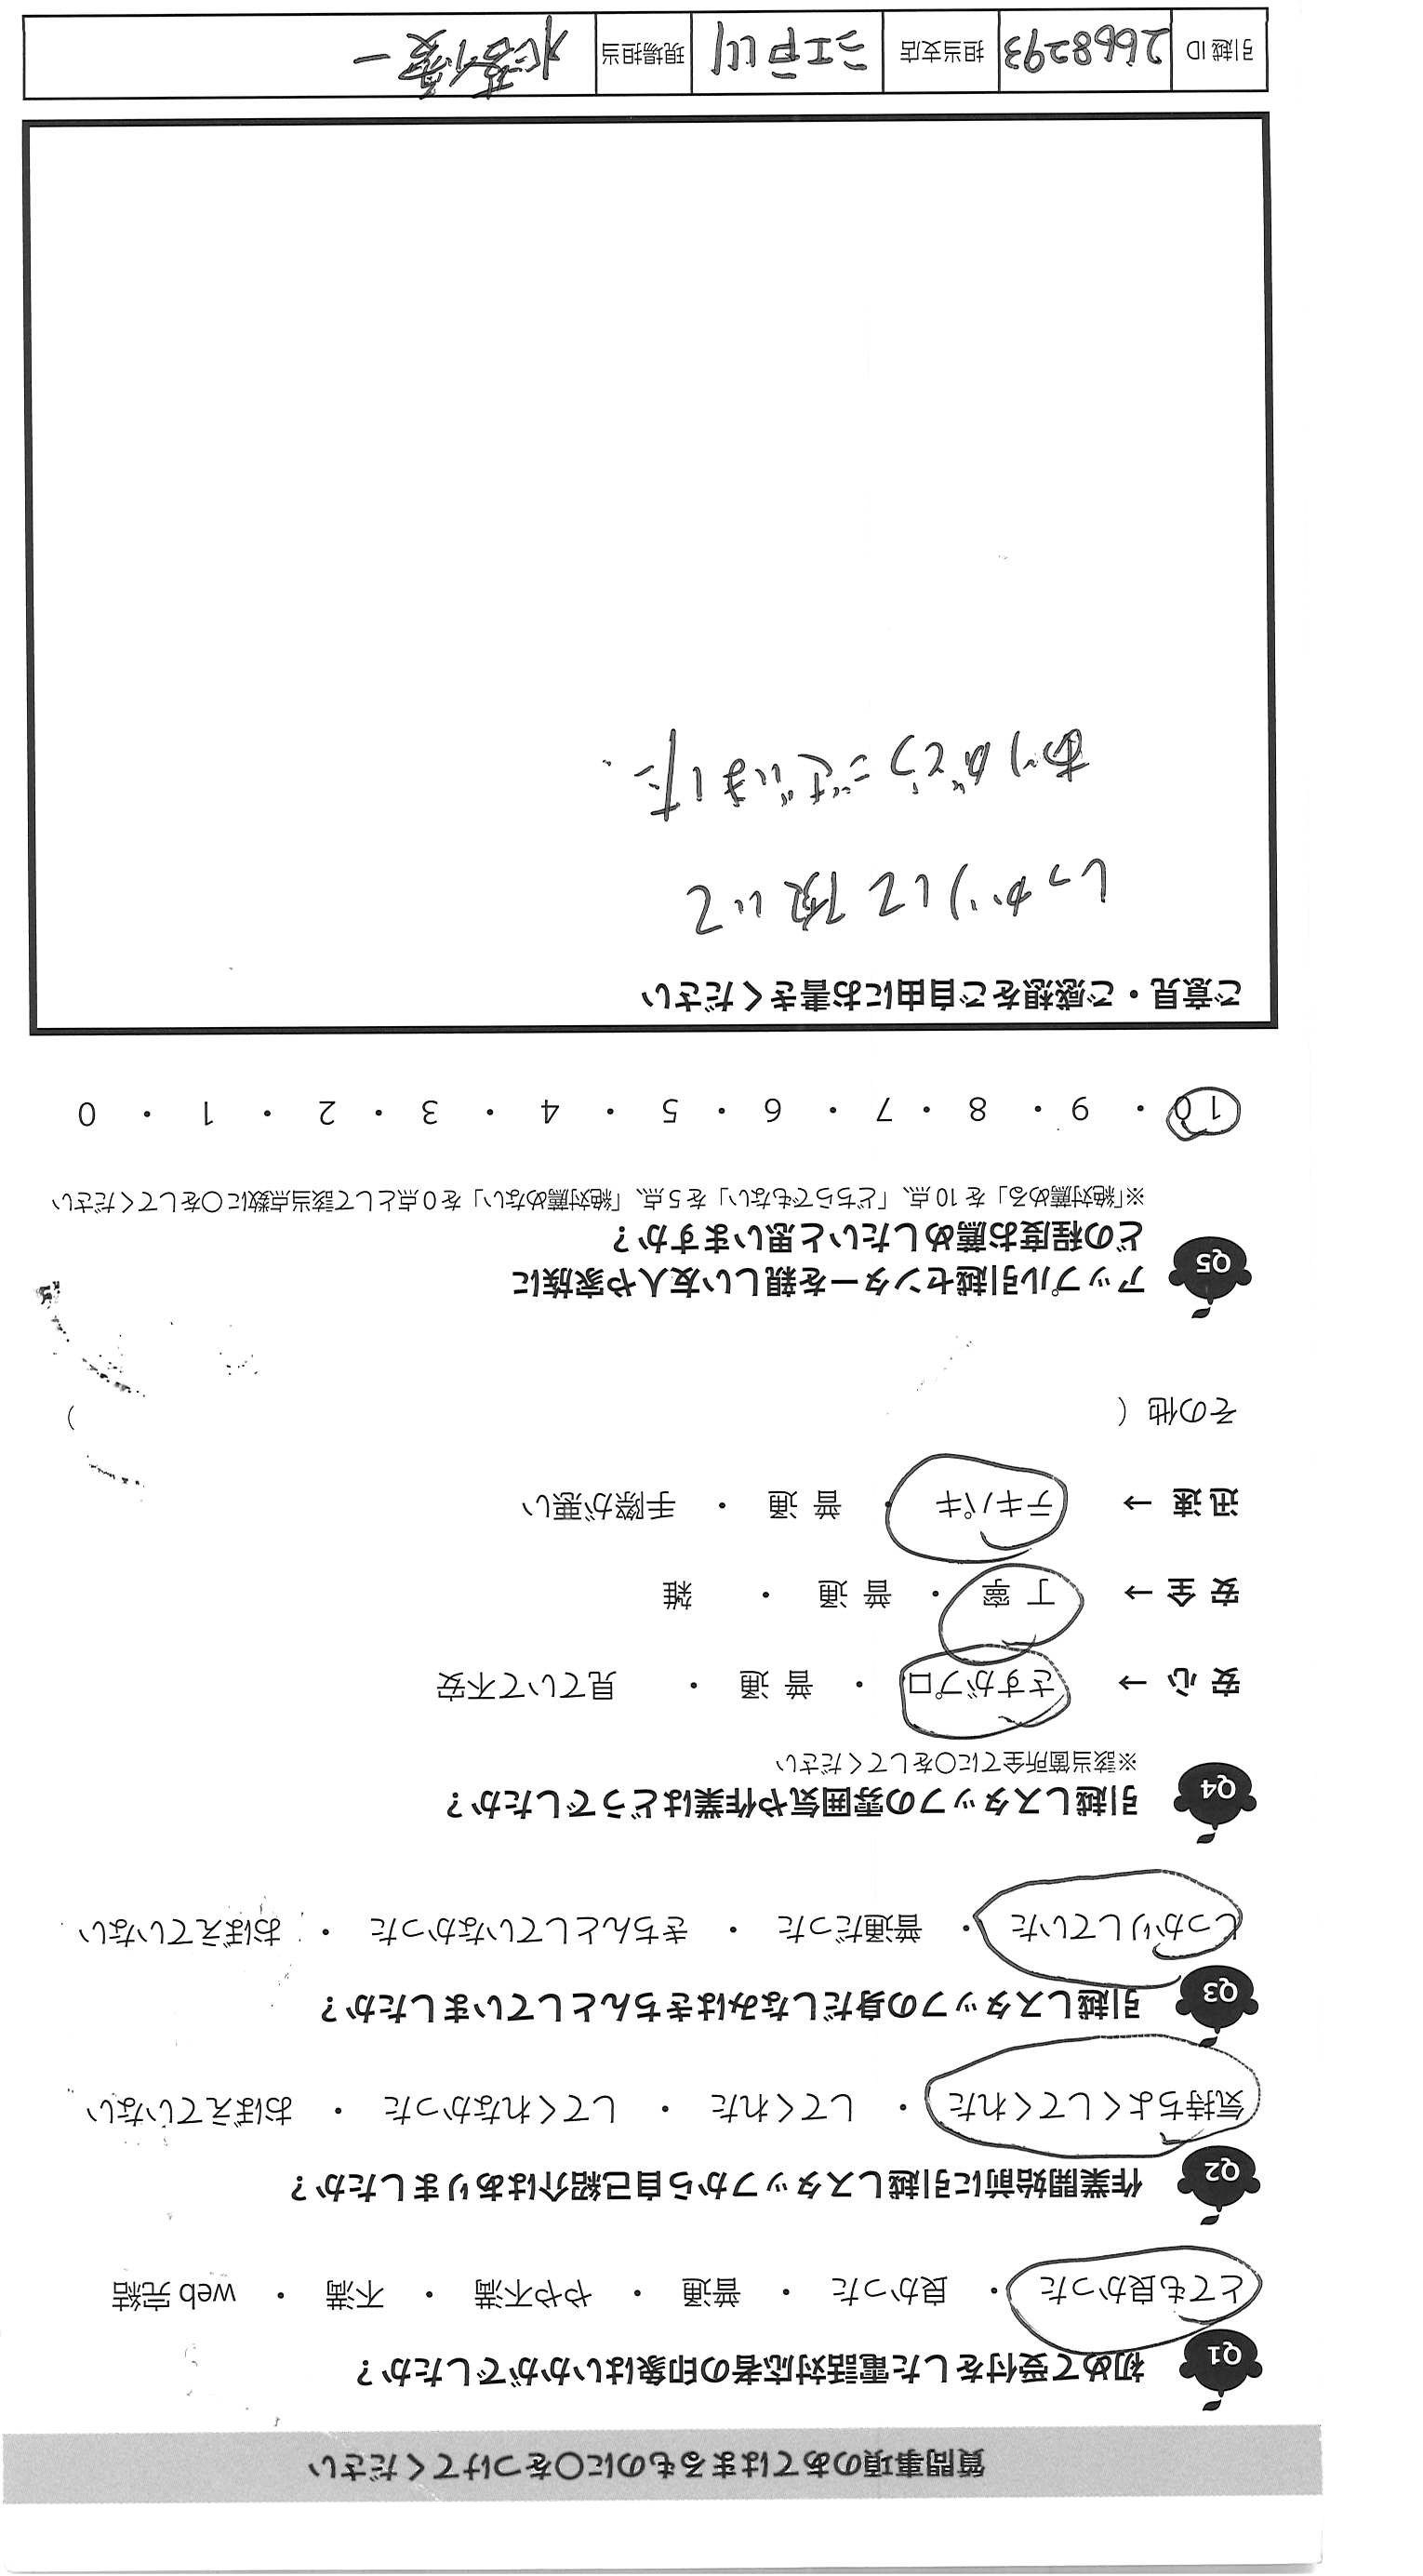 質問事項のあてはまるものに〇をつけてください
Q1 初めて受付をした電話対応者の印象はいかがでしたか？
とても良かった ・ 良かった ・ 普通 ・ やや不満 ・ 不満 ・ web 完結
Q2 作業開始前に引越しスタッフから自己紹介はありましたか？
気持ちよくしてくれた ・ してくれた ・ してくれなかった ・ おぼえていない
Q3 引越しスタッフの身だしなみはきちんとしていましたか？
しっかりしていた ・ 普通だった ・ きちんとしていなかった ・ おぼえていない
Q4 引越しスタッフの雰囲気や作業はどうでしたか？
※該当箇所全てに〇をしてください
安 心 → さすがプロ ・ 普 通 ・ 見ていて不安
安 全 → 丁 寧 ・ 普 通 ・ 雑
迅 速 → テキパキ ・ 普 通 ・ 手際が悪い
その他（ ）
Q5 アップル引越センターを親しい友人や家族に
どの程度お薦めしたいと思いますか？
※「絶対薦める」を 10 点、「どちらでもない」を 5 点、「絶対薦めない」を 0 点として該当点数に〇をしてください
10 ・ 9 ・ 8 ・ 7 ・ 6 ・ 5 ・ 4 ・ 3 ・ 2 ・ 1 ・ 0
ご意見・ご感想をご自由にお書きください
しっかりして頂いて
ありがとうございました.
引越 ID 2668293 担当支店 江戸川 現場担当